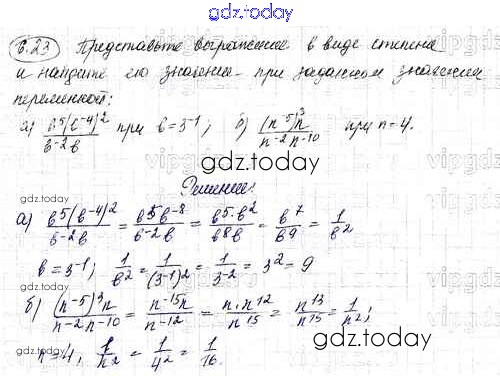 gdz.today
6.23 Представьте выражение в виде степени
и найдите его значение при заданном значении
переменной:
а) b⁵(b⁻⁴)² / b⁻²b при b=3⁻¹; б) (n⁻⁵)³n / n⁻²n⁻¹⁰ при n=4.
gdz.today
Решение:
gdz.today
а) b⁵(b⁻⁴)² / b⁻²b = b⁵b⁻⁸ / b⁻²b = b⁵·b² / b⁸b = b⁷ / b⁹ = 1 / b²
b=3⁻¹; 1 / b² = 1 / (3⁻¹)² = 1 / 3⁻² = 3² = 9
б) (n⁻⁵)³n / n⁻²n⁻¹⁰ = n⁻¹⁵n / n⁻¹² = n·n¹² / n¹⁵ = n¹³ / n¹⁵ = 1 / n²;
n=4, 1 / n² = 1 / 4² = 1 / 16.
gdz.today
gdz.today